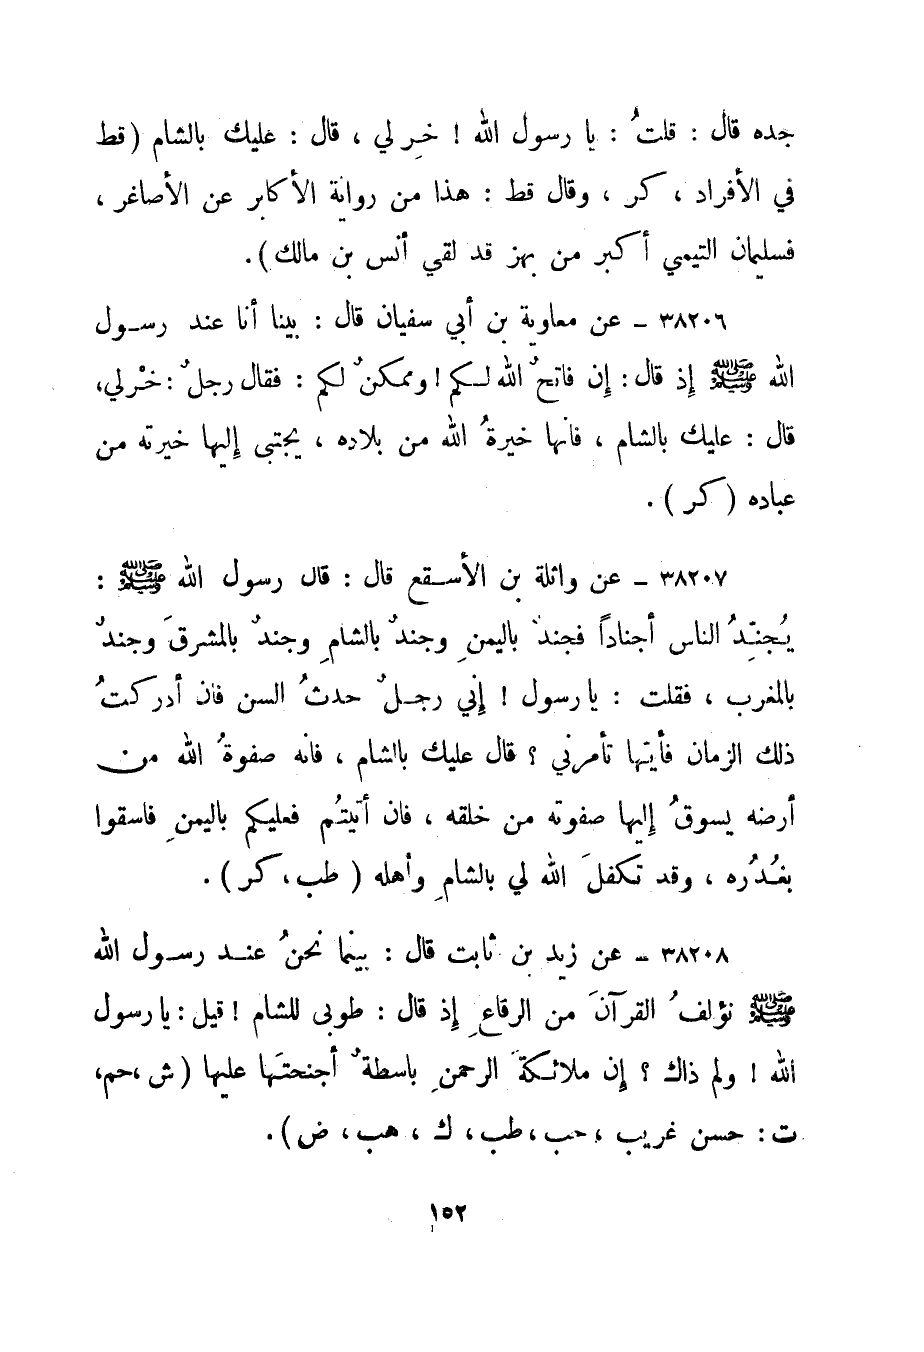 جده قال : قلتُ : يا رسول الله ! خِر لي ، قال : عليك بالشام (قط
في الأفراد ، كر ، وقال قط : هذا من رواية الأكابر عن الأصاغر ،
فسليمان التيمي أكبر من بهز قد لقي أنس بن مالك ) .
٣٨٢٠٦ ـ عن معاوية بن أبي سفيان قال : بينا أنا عند رسول
الله ﷺ إذ قال : إن فاتحٌ الله لكم ! وممكنٌ لكم : فقال رجلٌ : خْر لي،
قال : عليك بالشام ، فانها خيرةُ الله من بلاده ، يجتبى إليها خيرته من
عباده ( كر ) .
٣٨٢٠٧ ـ عن واثلة بن الأسقع قال : قال رسول الله ﷺ :
يُجنِّدُ الناس أجناداً فجندٌ باليمنِ وجندٌ بالشامِ وجندٌ بالمشرقَ وجندٌ
بالمغرب ، فقلت : يا رسول ! إني رجلٌ حدثُ السن فان أدركتُ
ذلك الزمان فأيتها تأمرني ؟ قال عليك بالشام ، فانه صفوةُ الله من
أرضه يسوقُ إليها صفوته من خلقه ، فان أتيتُم فعليكم باليمنِ فاسقوا
بغُدُره ، وقد تكفلَ الله لي بالشامِ وأهله ( طب ، كر ) .
٣٨٢٠٨ ـ عن زيد بن ثابت قال : بينما نحنُ عند رسول الله
ﷺ نؤلفُ القرآنَ من الرقاعِ إذ قال : طوبى للشام ! قيل : يا رسول
الله ! ولم ذاك ؟ إن ملائكةَ الرحمنِ باسطةٌ أجنحتَها عليها (ش ، حم،
ت : حسن غريب ، حب ، طب ، ك ، هب ، ض) .
١٥٢